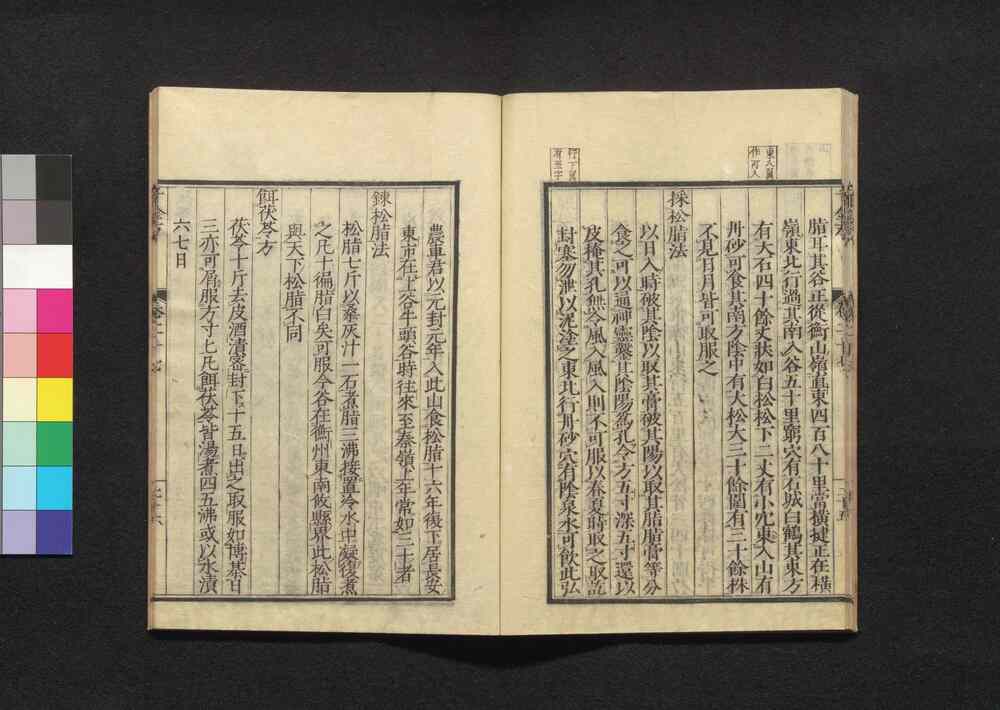 東人翼
作可入
行下翼
有五字
脂耳其谷正從衡山嶺直東四百八十里當橫捷正在橫
嶺東北行過其南入谷五十里窮穴有石城白鶴其東方
有大石四十餘丈狀如白松松下二丈有小穴東入山有
丹砂可食其南方陰中有大松大三十餘圍有三十餘株
不見日月皆可取服之
採松脂法
以日入時破其陰以取其膏破其陽以取其脂脂膏等分
食之可以通神靈鑿其陰陽為孔令方五寸深五寸還以
皮掩其孔無令風入風入則不可服以春夏時取之取訖
封塞勿泄以泥塗之東北行丹砂穴有陰泉水可飲此弘
農車君以元封元年入此山食松脂十六年復下居長安
東市在上谷牛頭谷時往來至秦嶺上年常如三十者
鍊松脂法
松脂七斤以桑灰汁一石煮脂三沸接置冷水中凝復煮
之凡十徧脂白矣可服今谷在衡州東南攸縣界此松脂
與天下松脂不同
餌茯苓方
茯苓十斤去皮酒漬密封下十五日出之取服如博棊日
三亦可屑服方寸匕凡餌茯苓皆湯煮四五沸或以水漬
六七日